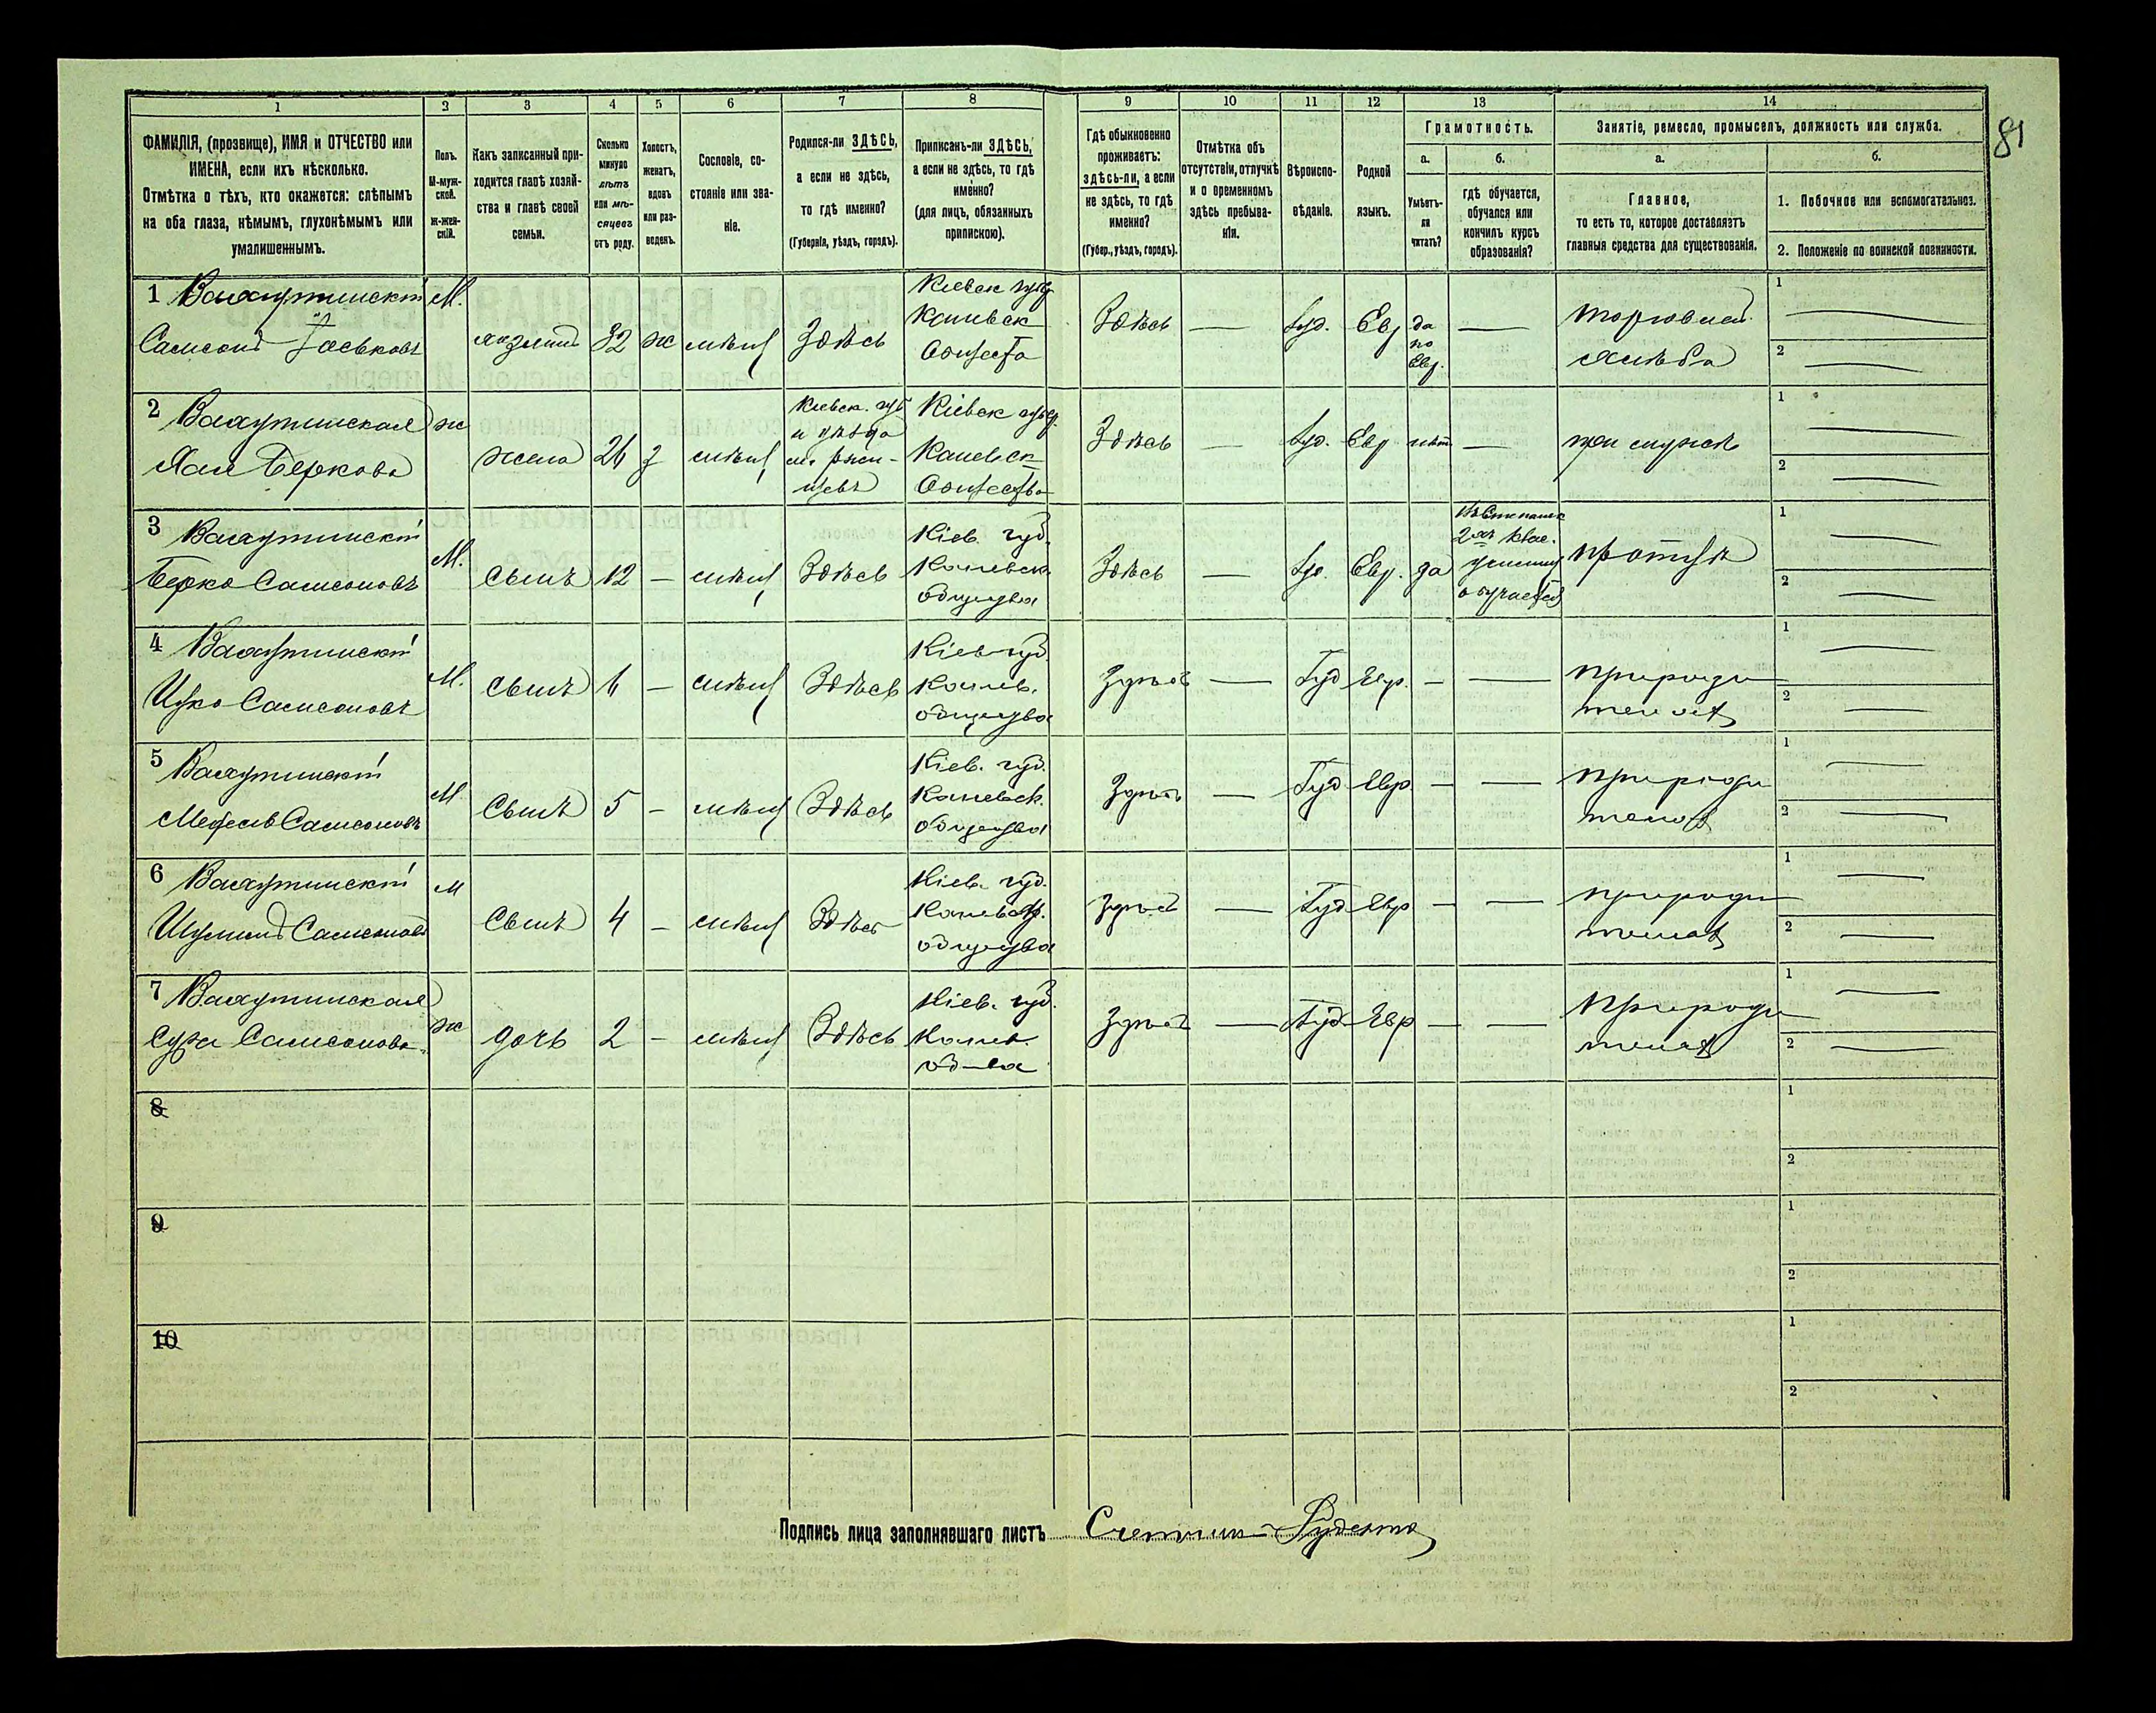 1 2 3 4 5 6 7 8 9 10 11 12 13 14
81
ФАМИЛІЯ, (прозвище), ИМЯ и ОТЧЕСТВО или
ИМЕНА, если ихъ нѣсколько.
Отмѣтка о тѣхъ, кто окажется: слѣпымъ
на оба глаза, нѣмымъ, глухонѣмымъ или
умалишеннымъ.
Полъ.
М-муж-
ской.
Ж-жен-
скій.
Какъ записанный при-
ходится главѣ хозяй-
ства и главѣ своей
семьи.
Сколько
минуло
лѣтъ
или мѣ-
сяцевъ
отъ роду.
Холостъ,
женатъ,
вдовъ
или раз-
веденъ.
Сословіе, со-
стояніе или зва-
ніе.
Родился-ли ЗДѢСЬ,
а если не здѣсь,
то гдѣ именно?
(Губернія, уѣздъ, городъ).
Приписанъ-ли ЗДѢСЬ,
а если не здѣсь, то гдѣ
именно?
(для лицъ, обязанныхъ
припискою).
Гдѣ обыкновенно
проживаетъ:
здѣсь-ли, а если
не здѣсь, то гдѣ
именно?
(Губер., уѣздъ, городъ).
Отмѣтка объ
отсутствіи, отлучкѣ
и о временномъ
здѣсь пребыва-
ніи.
Вѣроиспо-
вѣданіе.
Родной
языкъ.
Грамотность.
а.
Умѣетъ-
ли
читать?
б.
гдѣ обучается,
обучался или
кончилъ курсъ
образованія?
Занятіе, ремесло, промыселъ, должность или служба.
а.
Главное,
то есть то, которое доставляетъ
главныя средства для существованія.
б.
1. Побочное или вспомогательное.
2. Положеніе по воинской повинности.
1
Самсонъ Іоськовъ
М.
хозяинъ
32
ж
мѣщ
Здѣсь
Кіевск губ
Каневск
Общества
Здѣсь
—
Іуд.
Евр
да
по
Евр.
—
торговля
хлѣба
1 —
2 —
2
Хая Беркова
ж
жена
26
з
мѣщ
Кіевск. губ
и уѣзда
м. Ржи-
щевъ
Кіевск губ.
Каневск
Общества
Здѣсь
—
Іуд.
Евр
нѣт
—
при мужѣ
1 —
2 —
3
Берко Самсоновъ
М.
сынъ
12
—
мѣщ
Здѣсь
Кіев. губ.
Каневск.
общества
Здѣсь
—
Іуд.
Евр.
да
2хъ клас.
училищ
обучается
при отцѣ
1 —
2 —
4
Ицко Самсоновъ
М.
сынъ
6
—
мѣщ
Здѣсь
Кіев губ.
Канев.
общества
Здѣсь
—
Іуд
Евр.
—
—
при роди
телях
1 —
2 —
5
Самсоновъ
М
сынъ
5
—
мѣщ
Здѣсь
Кіев. губ.
Каневск.
общества
Здѣсь
—
Іуд
Евр
—
—
при роди
телях
1 —
2 —
6
Самсоновъ
М
сынъ
4
—
мѣщ
Здѣсь
Кіев. губ.
Каневск.
общества
Здѣсь
—
Іуд
Евр
—
—
при роди
телях
1 —
2 —
7
Сура Самсонова
ж
дочь
2
—
мѣщ
Здѣсь
Кіев. губ.
Канев.
об-ва
Здѣсь
—
Іуд
Евр
—
—
При роди
телях
1 —
2 —
8
1
2
9
1
2
10
1
2
Подпись лица заполнявшаго листъ